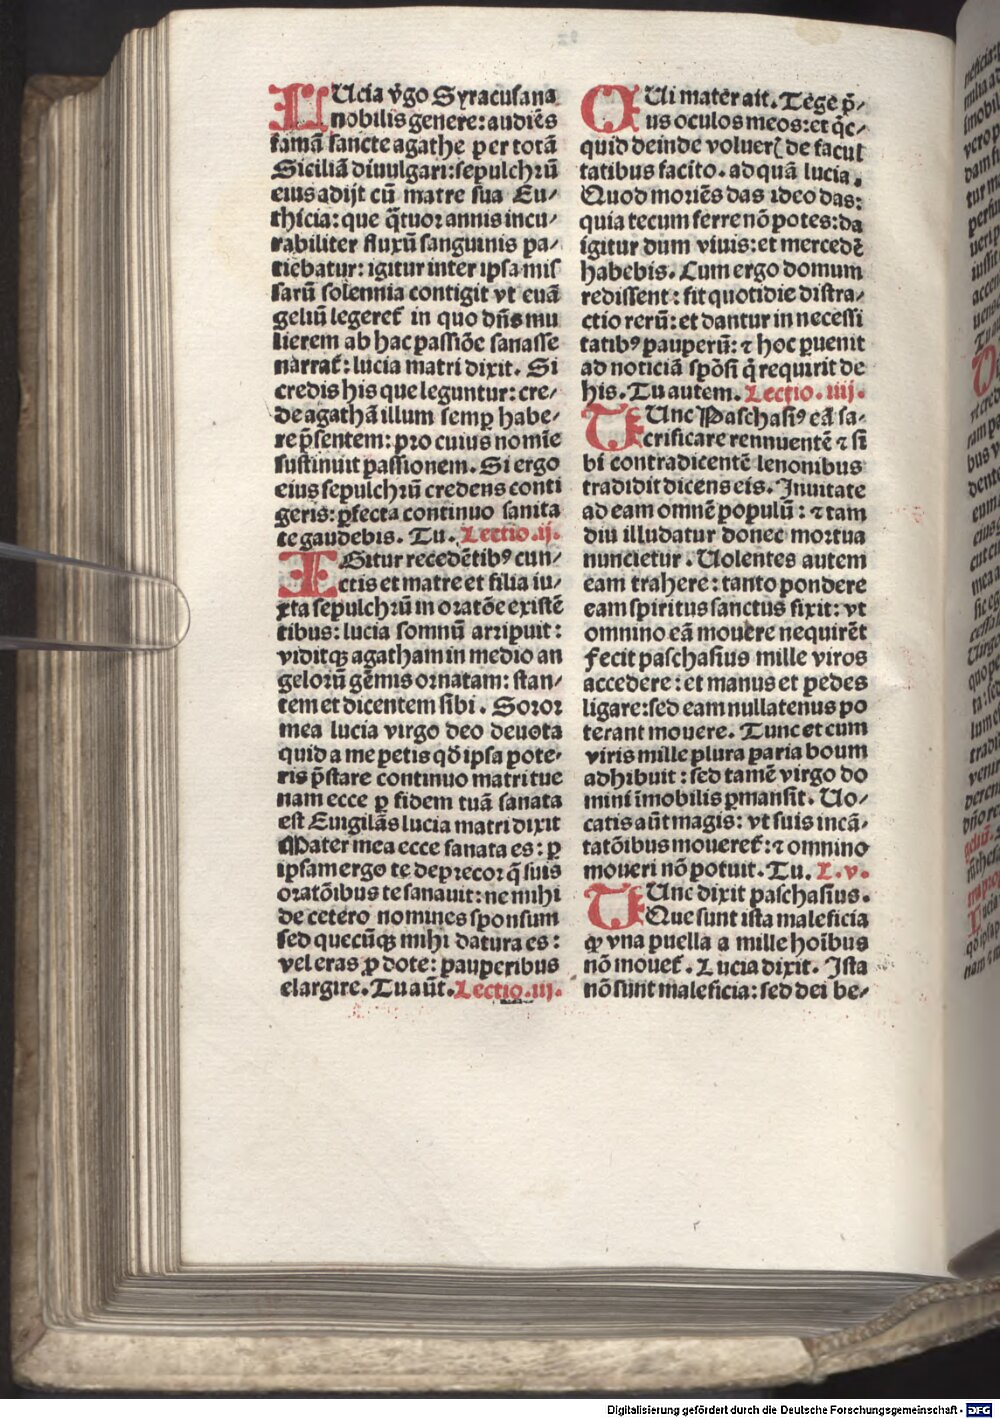 LUcia v̄go Syracusana
nobilis genere: audiēs
famā sancte agathe per totā
Siciliā diuulgari: sepulchꝛū
eius adijt cū matre sua Eu/
thicia: que q̄tuor annis incu/
rabiliter fluxū sanguinis pa/
tiebatur: igitur inter ipsa mis
sarū solennia contigit vt euā
geliū legeret᷑ in quo dn̄s mu
lierem ab hac passiōe sanasse
narrat᷑: lucia matri dixit. Si
credis his que leguntur: cre/
de agathā illum semꝑ habe/
re p̄sentem: pro cuius nomīe
sustinuit passionem. Si ergo
eius sepulchꝛū credens conti
geris: ꝑfecta continuo sanita
te gaudebis. Tu. Lectio .ij.
IGitur recedētibꝰ cun/
ctis et matre et filia iu/
xta sepulchꝛū in oratōe existē
tibus: lucia somnū arripuit:
viditqꝫ agatham in medio an
gelorū gēmis ornatam: stan/
tem et dicentem sibi. Soror
mea lucia virgo deo deuota
quid a me petis qd̄ ipsa pote/
ris p̄stare continuo matri tue
nam ecce ꝑ fidem tuā sanata
est Euigilās lucia matri dixit
Mater mea ecce sanata es: ꝑ
ipsam ergo te deprecor q̄ suis
oratōibus te sanauit: ne mihi
de cetero nomines sponsum
sed quecūqꝫ mihi datura es:
vel eras ꝓ dote: pauperibus
elargire. Tu aūt. Lectio .iij.
QUi mater ait. Tege p̄/
us oculos meos: et q̄c/
quid deinde voluerꝭ de facul
tatibus facito. ad quā lucia.
Quod moriēs das ideo das:
quia tecum ferre nō potes: da
igitur dum viuis: et mercedē
habebis. Cum ergo domum
redissent: fit quotidie distra/
ctio rerū: et dantur in necessi
tatibꝰ pauperū: ⁊ hoc ꝑuenit
ad noticiā spōsi q̄ requirit de
his. Tu autem. Lectio. iiij.
TUnc Paschasiꝰ eā sa/
crificare rennuentē ⁊ si
bi contradicentē lenonibus
tradidit dicens eis. Inuitate
ad eam omnē populū: ⁊ tam
diu illudatur donec mortua
nuncietur. Volentes autem
eam trahere: tanto pondere
eam spiritus sanctus fixit: vt
omnino eā mouere nequirēt
Fecit paschasius mille viros
accedere: et manus et pedes
ligare: sed eam nullatenus po
terant mouere. Tunc et cum
viris mille plura paria boum
adhibuit: sed tamē virgo do
mini īmobilis ꝑmansit. Uo/
catis aūt magis: vt suis incā/
tatōibus moueret᷑: ⁊ omnino
moueri nō potuit. Tu. L. v.
TUnc dixit paschasius.
Que sunt ista maleficia
ꝙ vna puella a mille hoībus
nō mouet᷑. Lucia dixit. Ista
nō sunt maleficia: sed dei be/
Digitalisierung gefördert durch die Deutsche Forschungsgemeinschaft - DFG